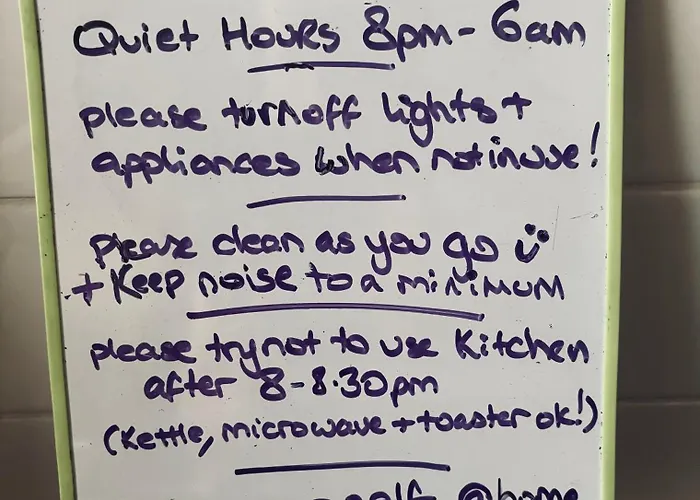 Quiet Hours 8pm - 6am
please turn off lights +
appliances when not in use!
please clean as you go
+ Keep noise to a minimum
please try not to use Kitchen
after 8-8.30pm
(Kettle, microwave + toaster ok!)
@home